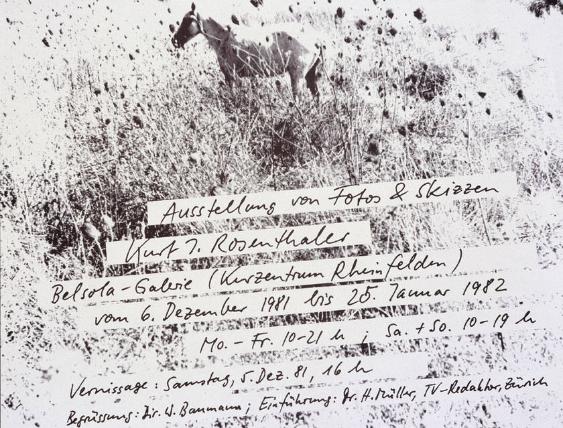 Ausstellung von Fotos & Skizzen
Kurt J. Rosenthaler
Belsola-Galerie (Kurzentrum Rheinfelden)
vom 6. Dezember 1981 bis 25. Januar 1982
Mo. - Fr. 10-21 h ; Sa. + So. 10-19 h
Vernissage: Samstag, 5. Dez. 81, 16 h
Begrüssung: Dir. W. Baumann; Einführung: Dr. H. Müller, TV-Redaktor, Zürich